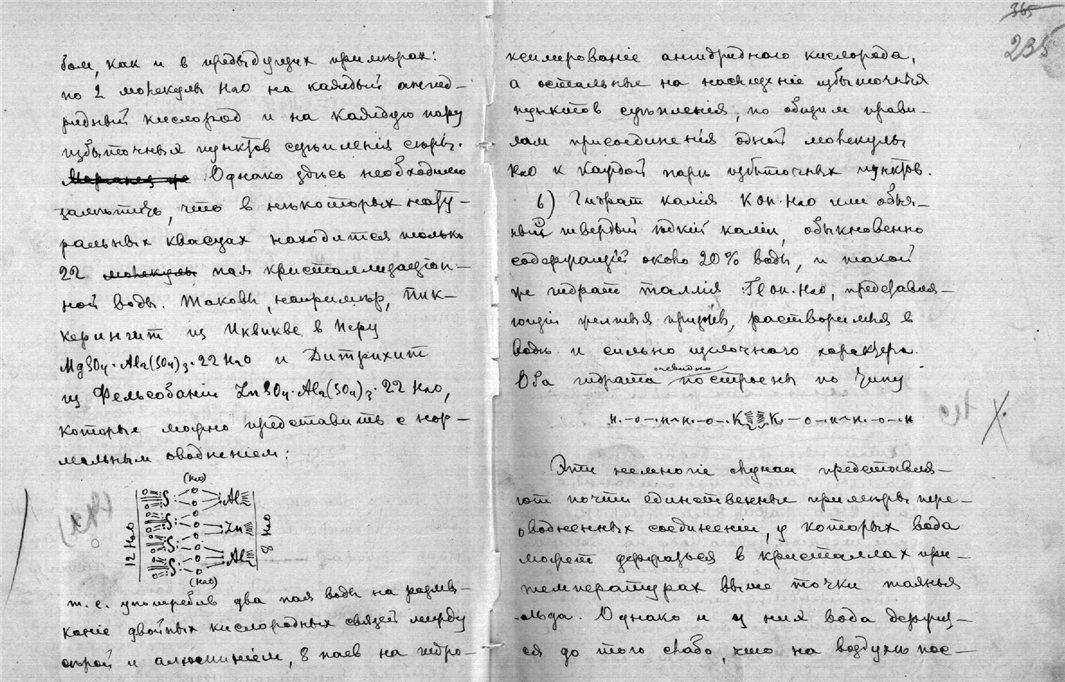 бом, как и в предыдущих примѣрах:
по 2 молекулы H2O на каждый ангид-
ридный кислород и на каждую пару
избыточныя пунктов сцѣпленія сѣры.
Однако здѣсь необходимо
замѣтить, что в нѣкоторых нату-
ральных квасцах находится только
22 пая кристаллизаціон-
ной воды. Таковы, например, Пик-
керингит из Иквикве в Перу
MgSO4·Al2(SO4)3·22H2O и Дитрихит
из Фельсобаніи ZnSO4·Al2(SO4)3·22H2O,
которые можно представить с нор-
мальным оводненіем:
(H2O)
12 H2O S S S S Al Zn Al 8 H2O
(H2O)
т.е. употребив два пая воды на размы-
каніе двойных кислородных связей между
сѣрой и алюминіем, 8 паев на гидро-
365
235
ксилированіе ангидридного кислорода,
а остальные на насыщеніе избыточныя
пунктов сцѣпленія, по общим прави-
лам присоединенія одной молекулы
H2O к каждой пары избыточных пунктов.
6) Гидрат калія KOH·H2O или обы-
ный твердый ѣдкій кали, обыкновенно
содержащій около 20% воды, и такой
же гидрат таллія TlOH·H2O, представля-
ющій желтыя призмы, растворимыя в
водѣ и сильно щелочного характера.
Оба гидрата очевидно построены по типу
H·-O-·H~H·-O-·K K·-O-·H~H·-O-·H
Эти немногіе случаи представля-
ют почти единственные примѣры пере-
оводненных соединеній, у которых вода
может держаться в кристаллах при
температурах выше точки таянья
льда. Однако и у них вода держит-
ся до того слабо, что на воздухѣ пос-